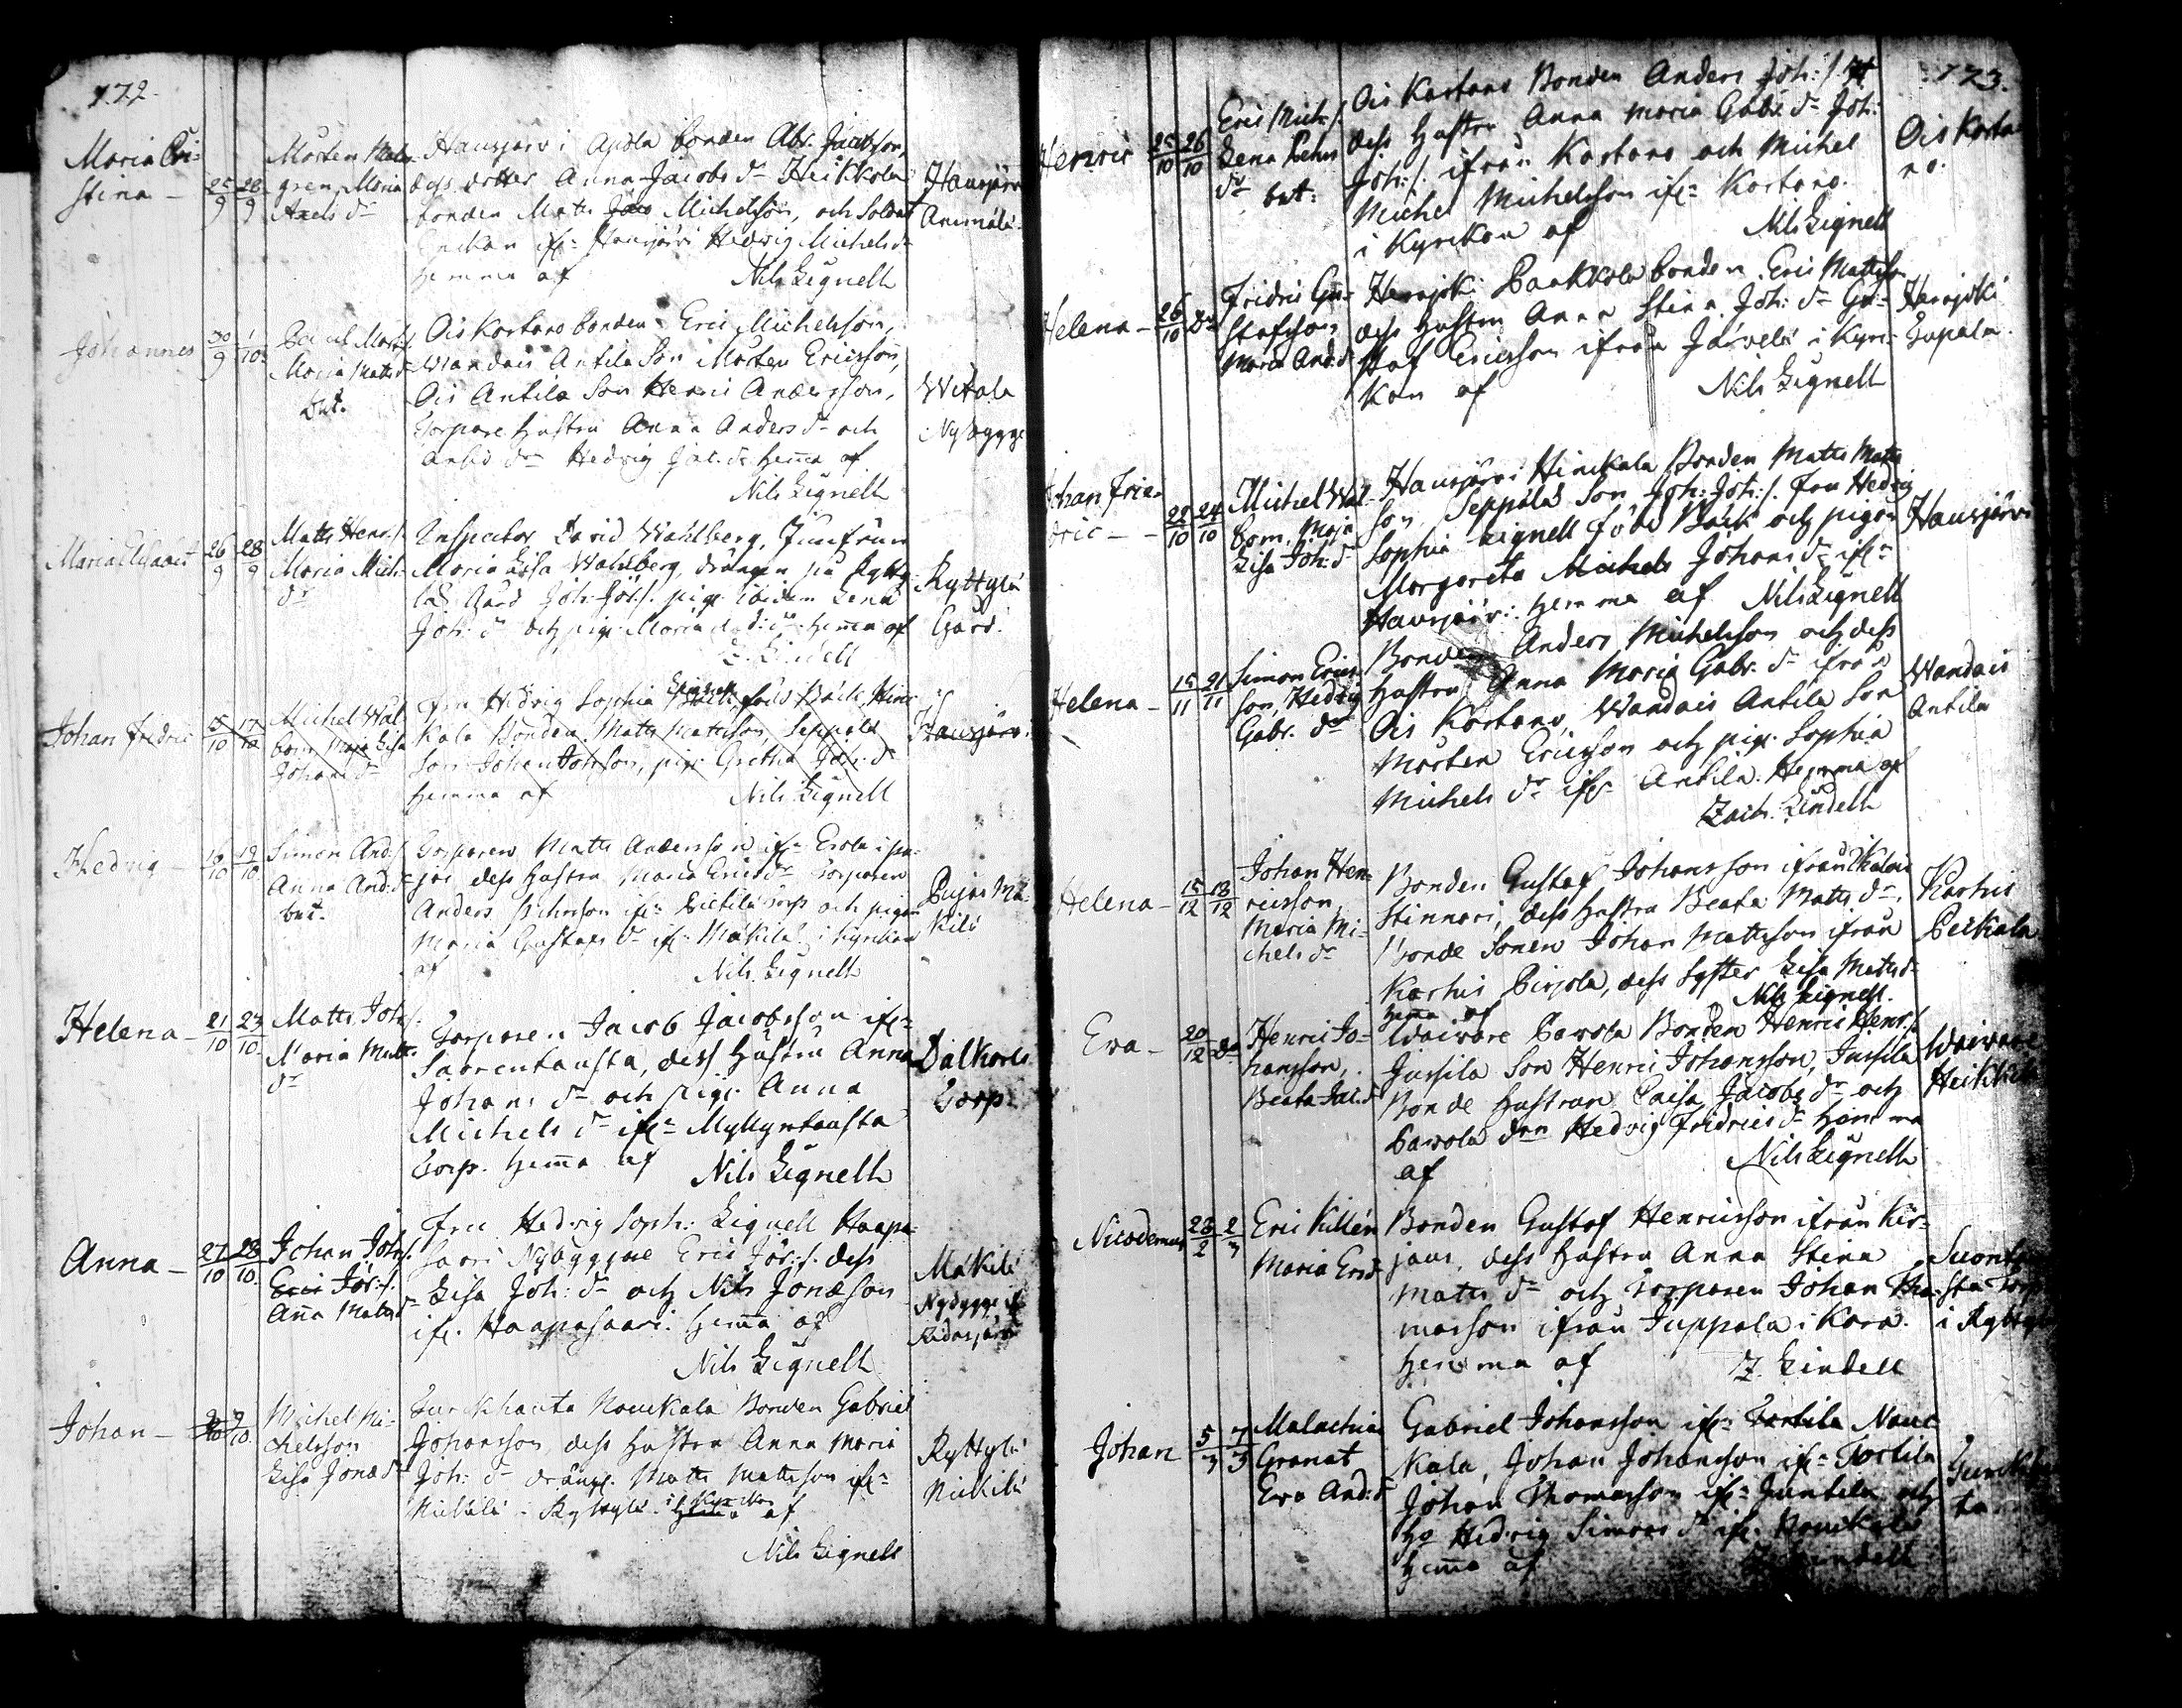 172.
Maria Cri-
stina - 25/9 28/9
Mårten Malm-
gren, Maria
Axels dr
Hausjärvi Apola bonden Abr. Jacobson,
dess dotter Anna Jacobs dr Heikkola
bonden Matts Michelsson, och Soldat
Enckan ifr Hausjärvi Hedvig Michels dr
hemma af
Nils Lignell
Hausjärvi
Johannes 30/9 1/10
Paul Mart:s.
Maria Matts dr
but.
Ois Kartano bonden Eric Michelsson,
Wandais Antila Son Mårten Ericsson,
Ois Antila Son Henric Andersson,
Torpare hustru Anna Anders dr och
Hedvig Jac. dr hema af
Nils Lignell
Witala
Nybygge
Maria Elisabet 26/9 28/9
Matts Henr:s.
Maria Mich:
dr
Inspector David Wahlberg, Jungfrun
Maria Lisa Wahlberg, drängen på Rytty-
lä Gård Joh: Joh:s. pig. ibidem Lena
Joh: dr och pig. Maria hema af
Z. Lindell
Ryttylä
Gård.
Johan Fridric 15/10 17/10
Michel Wal-
bom, Maja Lisa
Johans dr
Fru Hedvig Sophia Lignell född Bäck, Hinc-
kala Bonden Matts Mattsson, Seppälä
Son Johan Johsson, pig. Gretha Joh: dr
hemma af
Nils Lignell
Hausjärvi
Hedvig - 18/10 19/10
Simon And:s.
Anna And: dr
but.
Torparen Matts Andersson ifr Erola i pu-
jas dess hustru Maria Erics dr Torparen
Anders Johnsson ifr Torp och pigan
Maria Gustafs dr ifr Mäkilä i Kyrckan
af
Nils Lignell
Pujas Mä-
kilä
Helena - 21/10 23/10
Matts Joh:s.
Maria Matts
dr
Torparen Jacob Jacobsson ifr
Saarentausta, dess hustru Anna
Johans dr och pigi Anna
Michels dr ifr Myllyntausta
Torp. hema af Nils Lignell
Dalkarls
Torp.
Anna - 27/10 28/10
Johan Joh:s.
Eric Jör:s.
Ana Matts dr
Fru Hedvig Soph: Lignell Haapa-
saari Nybyggare Eric Jör:s. dess
Lisa Joh: dr och Nils Jonæson
ifr. Haapasaari. hema af
Nils Lignell
Mäkilä
Nybygge
Johan - 9/10
Michel Mi-
chelsson
Lisa Jonæ dr
Turckhauta Nauckala Bonden Gabriel
Johansson, dess hustru Anna Maria
Joh: dr drängl. Matts Mattsson ifr
Mickilä i Ryttylä. i Kyrckan af
Nils Lignell
Ryttylä
Mickilä
173.
Henric 25/10 26/10
Eric Mich:s.
Lena Joh:
dr but:
Ois Kartano Bonden Anders Joh:s.
dess hustru Anna Maria Gabr. dr Joh:
Joh:s. ifrån Kartano och Michel
Michel Michelsson ifr Kartano.
i Kyrckan af
Nils Lignell
Ois Karta
no.
Helena - 26/10 Do
Fridric Gu-
stafsson
Maria And. dr
Herajoki Paakkola bonden Eric Mattsson
dess hustru Anna Stina Joh: dr Gu-
staf Ericsson ifrån Järvelä i Kyrc-
kan af
Nils Lignell
Herajoki
Eupala.
Johan Frie-
dric - - 22/10 24/10
Michel Wal-
bom, Maja
Lisa Joh: dr
Hausjärvi Hinckala Bonden Matts Matts
son, Seppälä Son Joh: Joh:s. Fru Hedvig
Sophia Lignell född Bäck och pigan
Margareta Michels Johans dr ifr
Hausjärvi: hemma af Nils Lignell
Hausjärvi
Helena - 15/11 21/11
Simon Erics
son, Hedvig
Gabr. dr
Bonden Anders Michelsson och dess
hustru Anna Maria Gabr. dr ifrån
Ois Kartano, Wandais Antila Son
Mårten Ericsson och pig. Sophia
Michels dr ifr Antila. Hemma af
Zach. Lindell
Wandais
Antila
Helena - 15/12 18/12
Johan Hen-
ricsson,
Maria Mi-
chels dr
Bonden Gustaf Johansson ifrån Kalois
Stinnari, dess hustru Beata Matts dr,
Bonde Sonen Johan Mattsson ifrån
Karhis Pirjola, dess Syster Lisa Matts dr
hema af Nils Lignell.
Karhis
Peckala
Eva - 20/12 Do
Henric Jo-
hansson,
Beata Jac: dr
Waivare Pavola Bonden Henric Henr:s.
Jussila Son Henric Johansson, Jussila
Bonde hustrun Caisa Jacobs dr och
Pavola dren Hedvig Fridrics dr hemma
af
Nils Lignell
Waivare
Heikkilä
Nicodemus 28/2 2/3
Eric Killén
Maria Ers dr
Bonden Gustaf Henricsson ifrån Kir-
jaus, dess hustru Anna Stina
Matts dr och Torparen Johan Tho-
masson ifrån Juppala i Kara.
hemma af
Z. Lindell
Suonta
sta Torp
i Ryttylä
Johan 5/3 7/3
Malachias
Granat
Eva And: dr
Gabriel Johansson ifr Nauc-
kala, Johan Johansson ifr Torkila
Johan Thomasson ifr Juntila och
Hu Hedvig Simons dr ifr. Nauckala
hema af
Z. Lindell
Turckhau
ta.